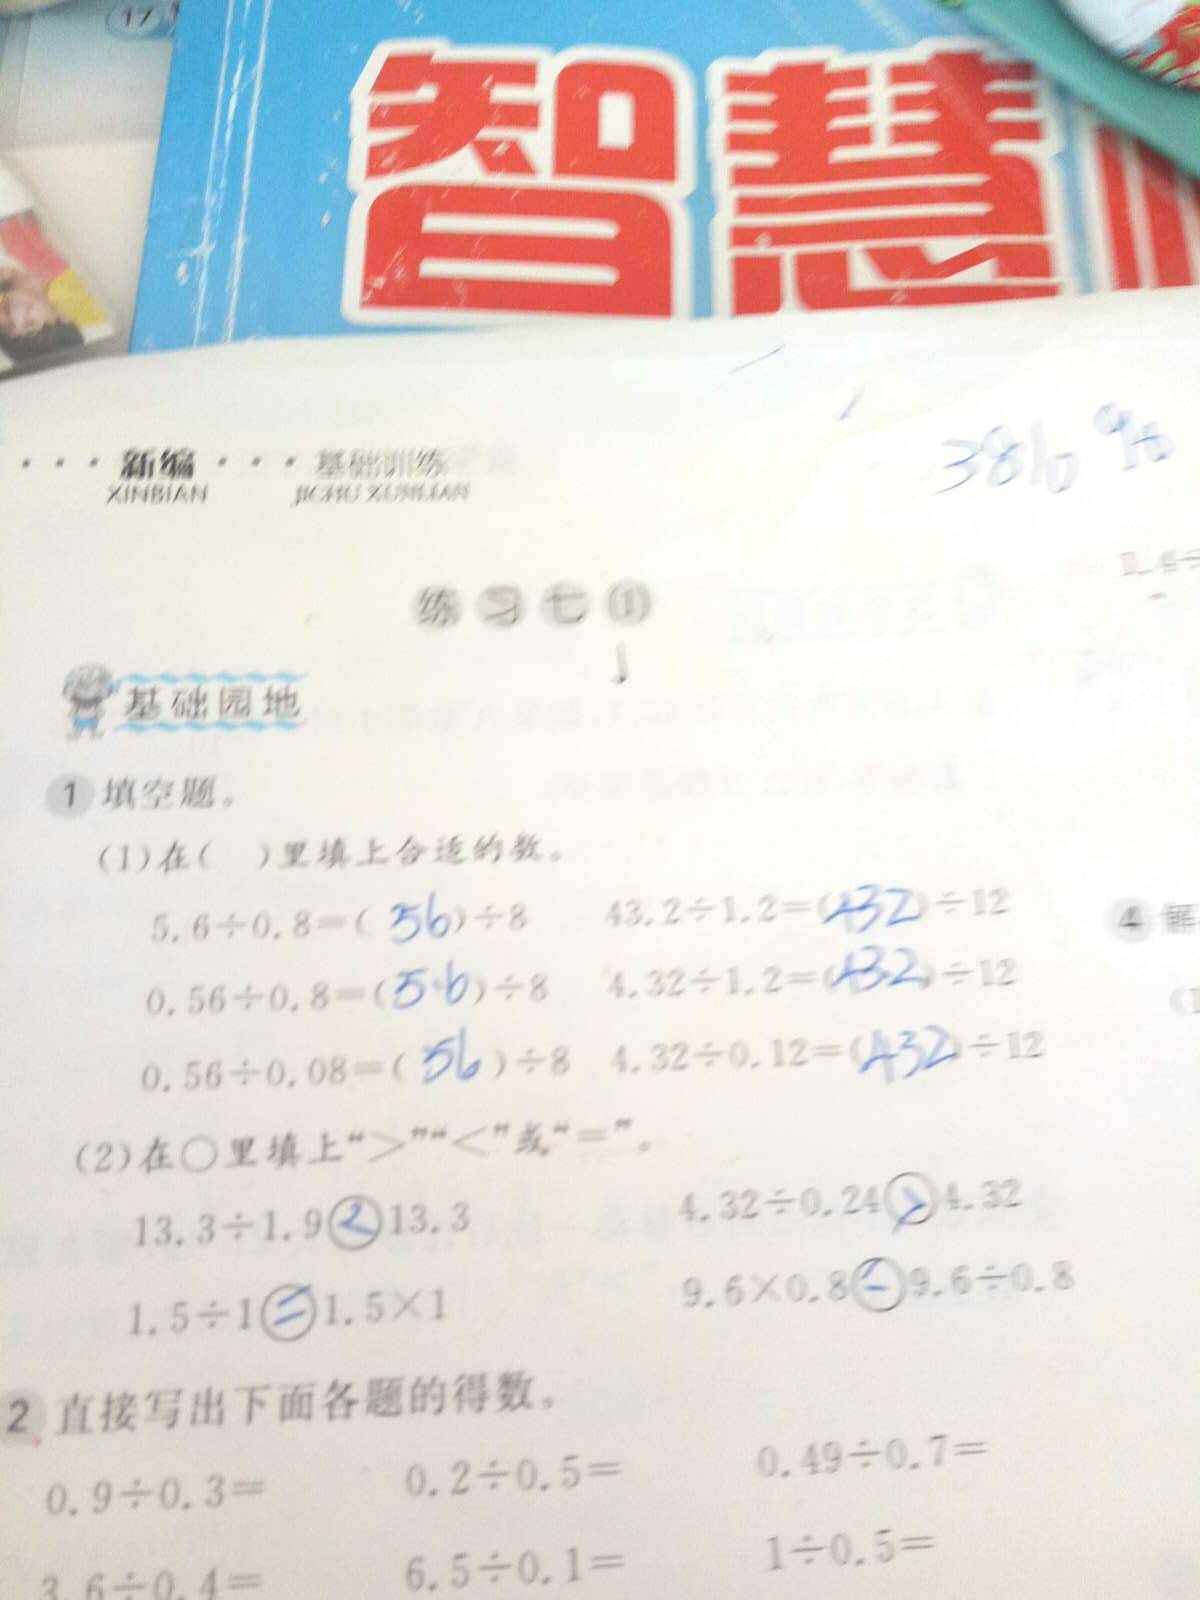 17
智慧
新编 基础训练
XINBIAN JICHU XUNLIAN
练习七①
基础园地
1 填空题。
(1)在( )里填上合适的数。
5.6÷0.8=(56)÷8 43.2÷1.2=(432)÷12
0.56÷0.8=(5.6)÷8 4.32÷1.2=(43.2)÷12
0.56÷0.08=(56)÷8 4.32÷0.12=(432)÷12
(2)在○里填上“>”“<”或“=”。
13.3÷1.9<13.3 4.32÷0.24>4.32
1.5÷1=1.5×1 9.6×0.8 9.6÷0.8
2 直接写出下面各题的得数。
0.9÷0.3= 0.2÷0.5= 0.49÷0.7=
3.6÷0.4= 6.5÷0.1= 1÷0.5=
4 解